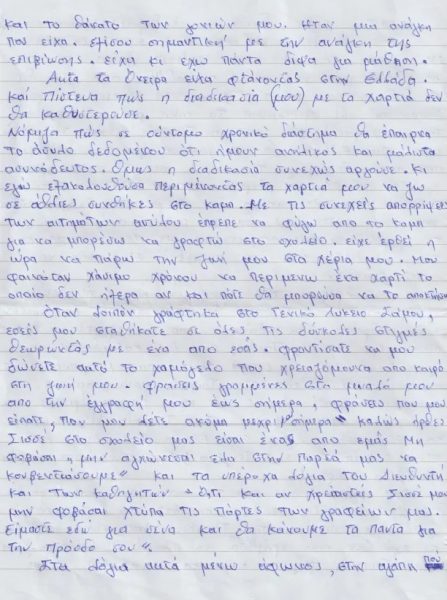 και το θάνατο των γονιών μου. Ήταν μια ανάγκη
που είχα. Εξίσου σημαντική με την ανάγκη της
επιβίωσης. είχα κι εχω πάντα δίψα για μάθηση.
Αυτα τα Όνειρα ειχα φτάνοντας στην Ελλάδα.
Και Πίστευα πως η διαδικασία (μου) με τα χαρτιά δεν
θα καθυστερουσε.
Νόμιζα πως σε σύντομο χρονικό διάστημα θα έπαιρνα
το άσυλο δεδομένου ότι ήμουν ανήλικος και μάλιστα
ασυνόδευτος. Όμως η διαδικασία συνεχώς αργουσε. Κι
εγώ εξακολουθούσα περιμένοντας τα χαρτιά μου να ζω
σε άθλιες συνθήκες στο καμπ. Με τις συνεχείς απορρίψεις
των αιτημάτων ασύλου έπρεπε να φύγω απο το καμπ
για να μπορέσω να γραφτώ στο σχολείο. είχε έρθει η
ώρα να πάρω την ζωή μου στα χέρια μου. Μου
φαινόταν χάσιμο χρόνου να περιμένω ένα χαρτί το
οποίο δεν ήξερα αν και πότε θα μπορούσα να το αποκτήσω
Όταν λοιπόν γράφτηκα στο Γενικό Λυκειο Σάμου,
εσείς μου σταθήκατε σε όλες τις δύσκολες στιγμές
θεωρώντας με ένα απο εσάς. φροντίσατε να μου
δώσετε αυτό το χαμόγελο που χρειαζόμουνα απο καιρό
στη ζωή μου. φράσεις γραμμένες στη μυαλό μου
απο την εγγραφή μου έως σήμερα, φράσεις που μου
είπατε, που μου λέτε ακόμα μεχρι σήμερα " καλώς ήρθες
Σισσε στο σχολείο μας είσαι ένας απο εμάς Μη
φοβάσαι, μην αγχώνεσαι έλα στην παρέα μας να
κουβεντιάσουμε" και τα υπέροχα λόγια του Διευθυντή
και των καθηγητών " Ότι και αν χρειαστείς Σισσε μου
μην φοβάσαι χτύπα τις πόρτες των γραφείων μας.
Είμαστε εδώ για σένα και θα κάνουμε τα παντα για
την πρόοδο σου".
Στα λόγια αυτά μένω άφωνος, στην αγάπη που